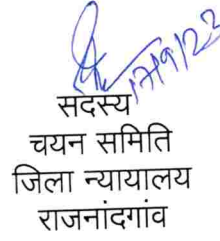 17/9/22
सदस्य
चयन समिति
जिला न्यायालय
राजनांदगांव